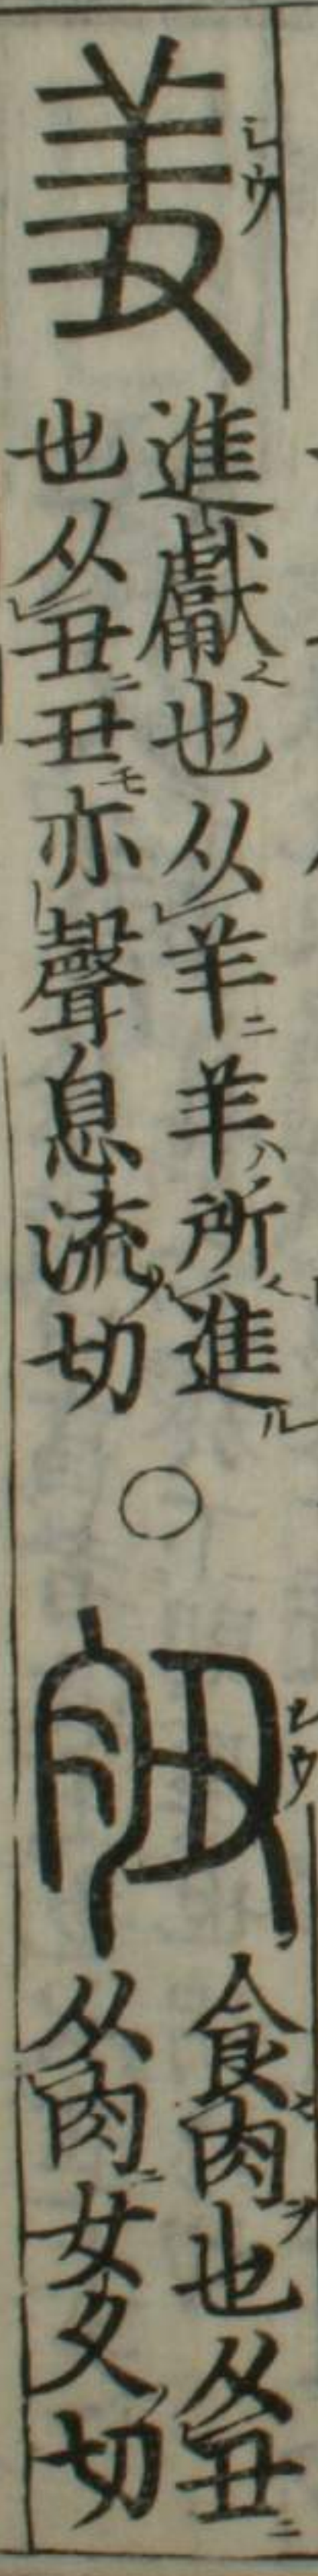 羞 シウ
進獻也从羊羊所進
也从丑丑亦聲息流切
○
䏔 シウ
食肉也从丑
从肉女久切